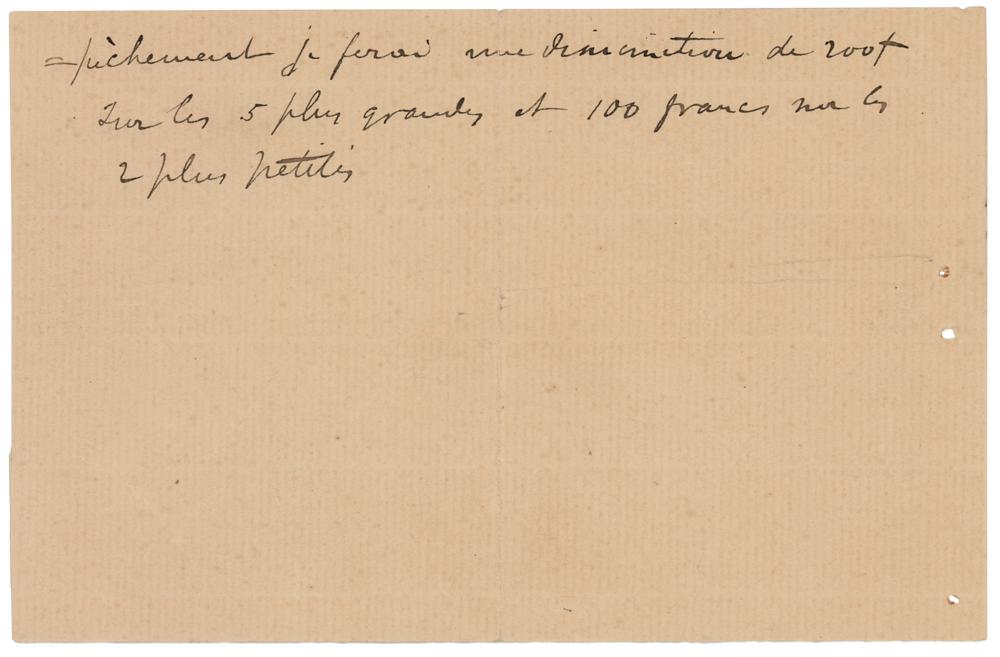 =pêchement je ferai une diminution de 200f
sur les 5 plus grandes et 100 francs sur les
2 plus petites